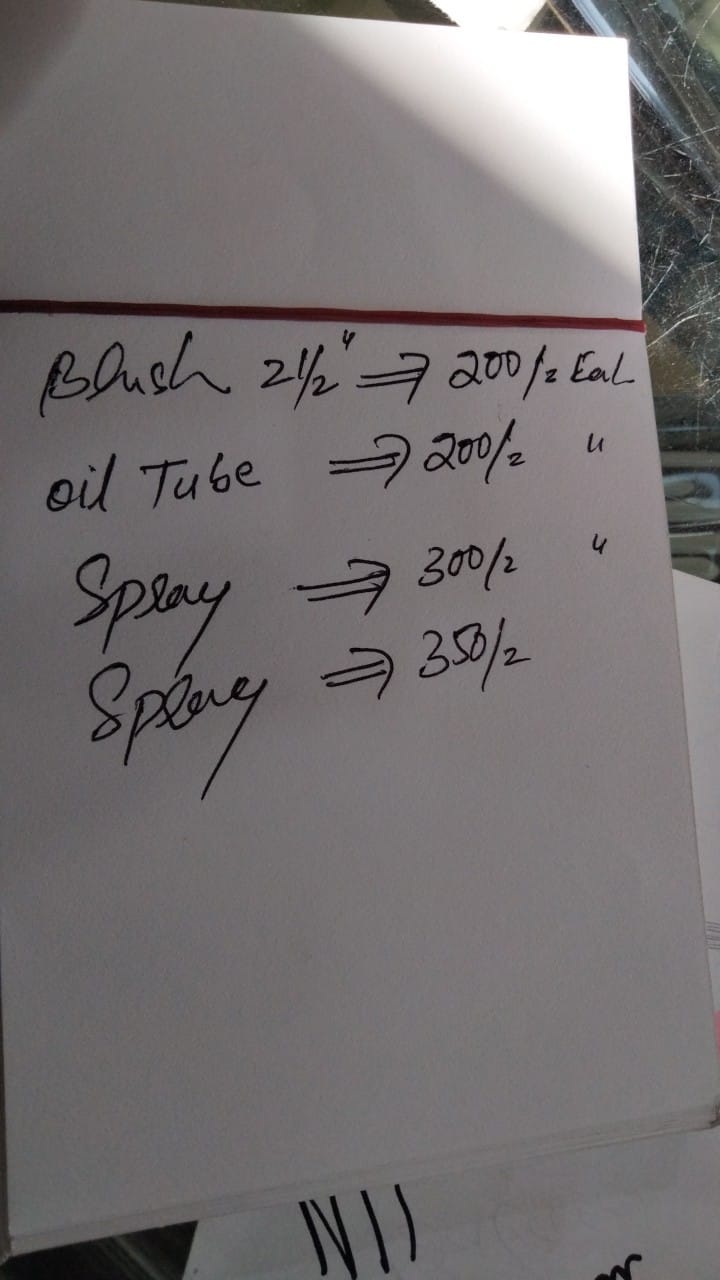 Blush 2½" ⇒ 200/= Each
oil Tube ⇒ 200/= "
Spray ⇒ 300/= "
Spray ⇒ 350/=